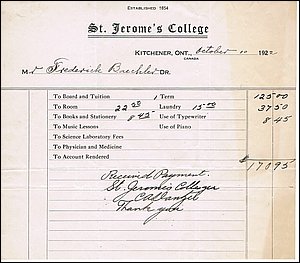 ESTABLISHED 1864
St. Jerome's College
KITCHENER, ONT., October 10 1922
CANADA
Mr Frederick Baechler DR.
To Board and Tuition 1 Term 125 00
To Room 22 50 Laundry 15 00 37 50
To Books and Stationery 8 45 Use of Typewriter 8 45
To Music Lessons Use of Piano
To Science Laboratory Fees
To Physician and Medicine
To Account Rendered
$170 95
Received Payment.
St. Jerome's College
Thank you